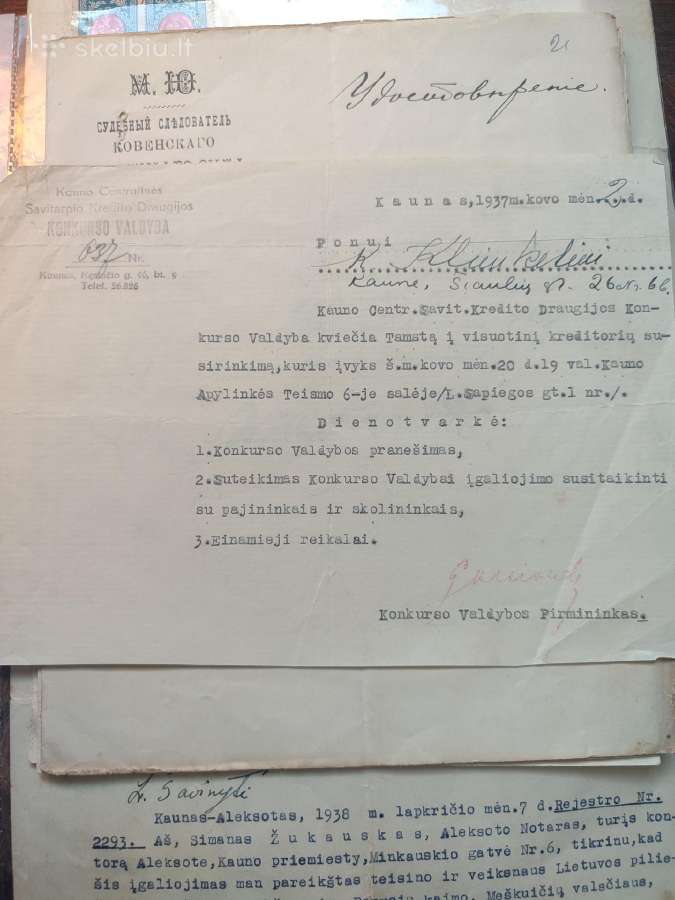 skelbiu.lt
21
М. Ю.
Удостовѣреніе.
СУДЕБНЫЙ СЛѢДОВАТЕЛЬ
КОВЕНСКАГО
Kauno Centralinės
Savitarpio Kredito Draugijos
KONKURSO VALDYBA
637 Nr.
Kaunas, Kęstučio g. 46, bt. 9
Telef. 26826
Kaunas, 1937 m. kovo mėn. 2 d.
Ponui
K.
Kaune, Šiaulių gt. 26 nr. b 6.
Kauno Centr.Savit.Kredito Draugijos Kon-
kurso Valdyba kviečia Tamstą į visuotinį kreditorių su-
sirinkimą,kuris įvyks š.m.kovo mėn.20 d.19 val.Kauno
Apylinkės Teismo 6-je salėje/L.Sapiegos gt.1 nr./.
Dienotvarkė:
1.Konkurso Valdybos pranešimas,
2.Suteikimas Konkurso Valdybai įgaliojimo susitaikinti
su pajininkais ir skolininkais,
3.Einamieji reikalai.
Konkurso Valdybos Pirmininkas.
Kaunas-Aleksotas, 1938 m. lapkričio mėn.7 d.Rejestro Nr.
2293. Aš, Simanas Žukauskas, Aleksoto Notaras, turįs kon-
torą Aleksote,Kauno priemiesty,Minkauskio gatvė Nr.6, tikrinu,kad
šis įgaliojimas man pareikštas teisino ir veiksnaus Lietuvos pilie-
kaimo, Meškuičių valsčiaus,